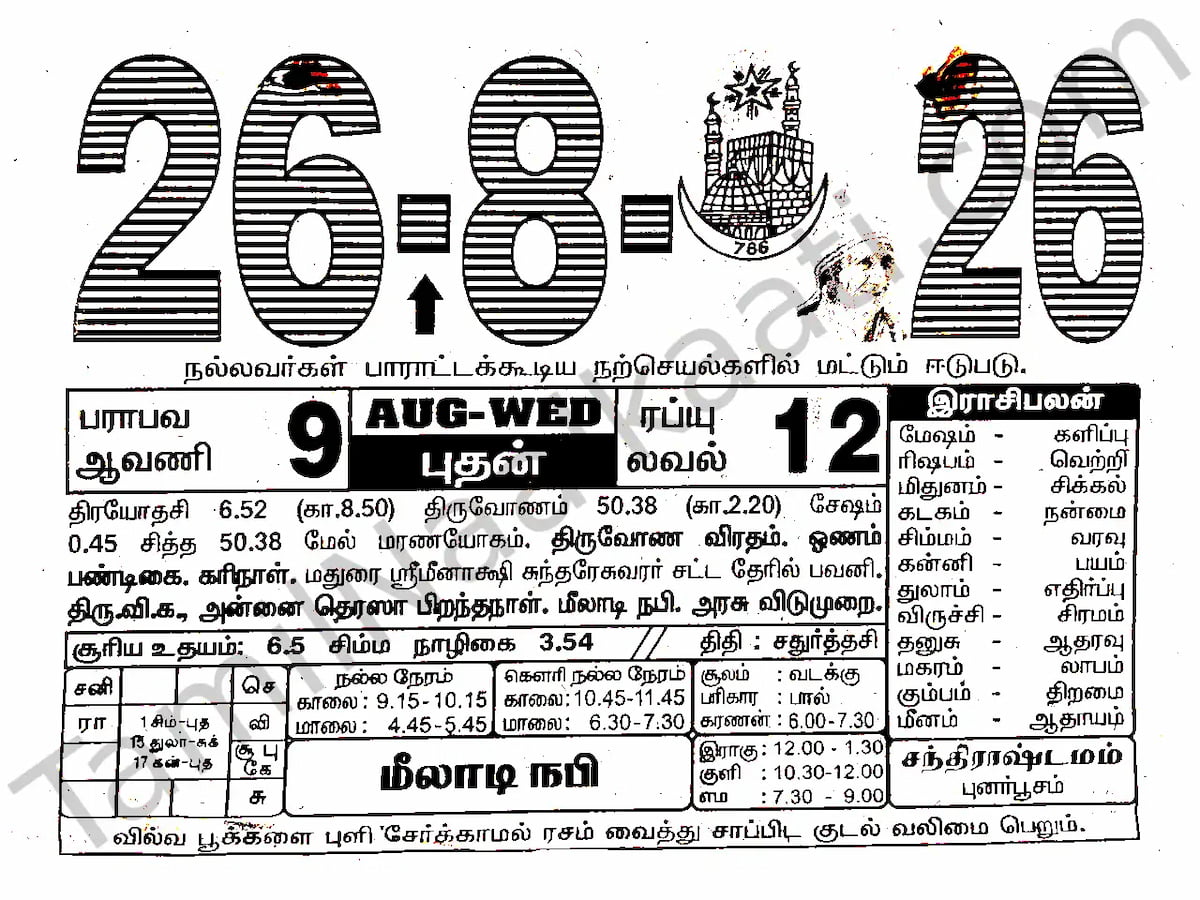 26-8-26
786
நல்லவர்கள் பாராட்டக்கூடிய நற்செயல்களில் மட்டும் ஈடுபடு.
பராபவ
ஆவணி 9
AUG-WED
புதன்
ரப்யு
லவல் 12
திரயோதசி 6.52 (கா.8.50) திருவோணம் 50.38 (கா.2.20) சேஷம்
0.45 சித்த 50.38 மேல் மரணயோகம். திருவோண விரதம். ஓணம்
பண்டிகை. கரிநாள். மதுரை ஸ்ரீமீனாக்ஷி சுந்தரேசுவரர் சட்ட தேரில் பவனி.
திரு.வி.க., அன்னை தெரஸா பிறந்தநாள். மீலாடி நபி. அரசு விடுமுறை.
சூரிய உதயம்: 6.5 சிம்ம நாழிகை 3.54 // திதி : சதுர்த்தசி
சனி
செ
ரா
வி
சூ பு
கே
சு
1 சிம்-புத
15 துலா-சுக்
17 கன்-புத
நல்ல நேரம்
காலை: 9.15-10.15
மாலை: 4.45-5.45
கௌரி நல்ல நேரம்
காலை:10.45-11.45
மாலை: 6.30-7.30
சூலம் : வடக்கு
பரிகார : பால்
கரணன் : 6.00-7.30
மீலாடி நபி
இராகு : 12.00 - 1.30
குளி : 10.30-12.00
எம : 7.30 - 9.00
இராசிபலன்
மேஷம் - களிப்பு
ரிஷபம் - வெற்றி
மிதுனம் - சிக்கல்
கடகம் - நன்மை
சிம்மம் - வரவு
கன்னி - பயம்
துலாம் - எதிர்ப்பு
விருச்சி - சிரமம்
தனுசு - ஆதரவு
மகரம் - லாபம்
கும்பம் - திறமை
மீனம் - ஆதாயம்
சந்திராஷ்டமம்
புனர்பூசம்
வில்வ பூக்களை புளி சேர்க்காமல் ரசம் வைத்து சாப்பிட குடல் வலிமை பெறும்.
TamilNaatkaati.com